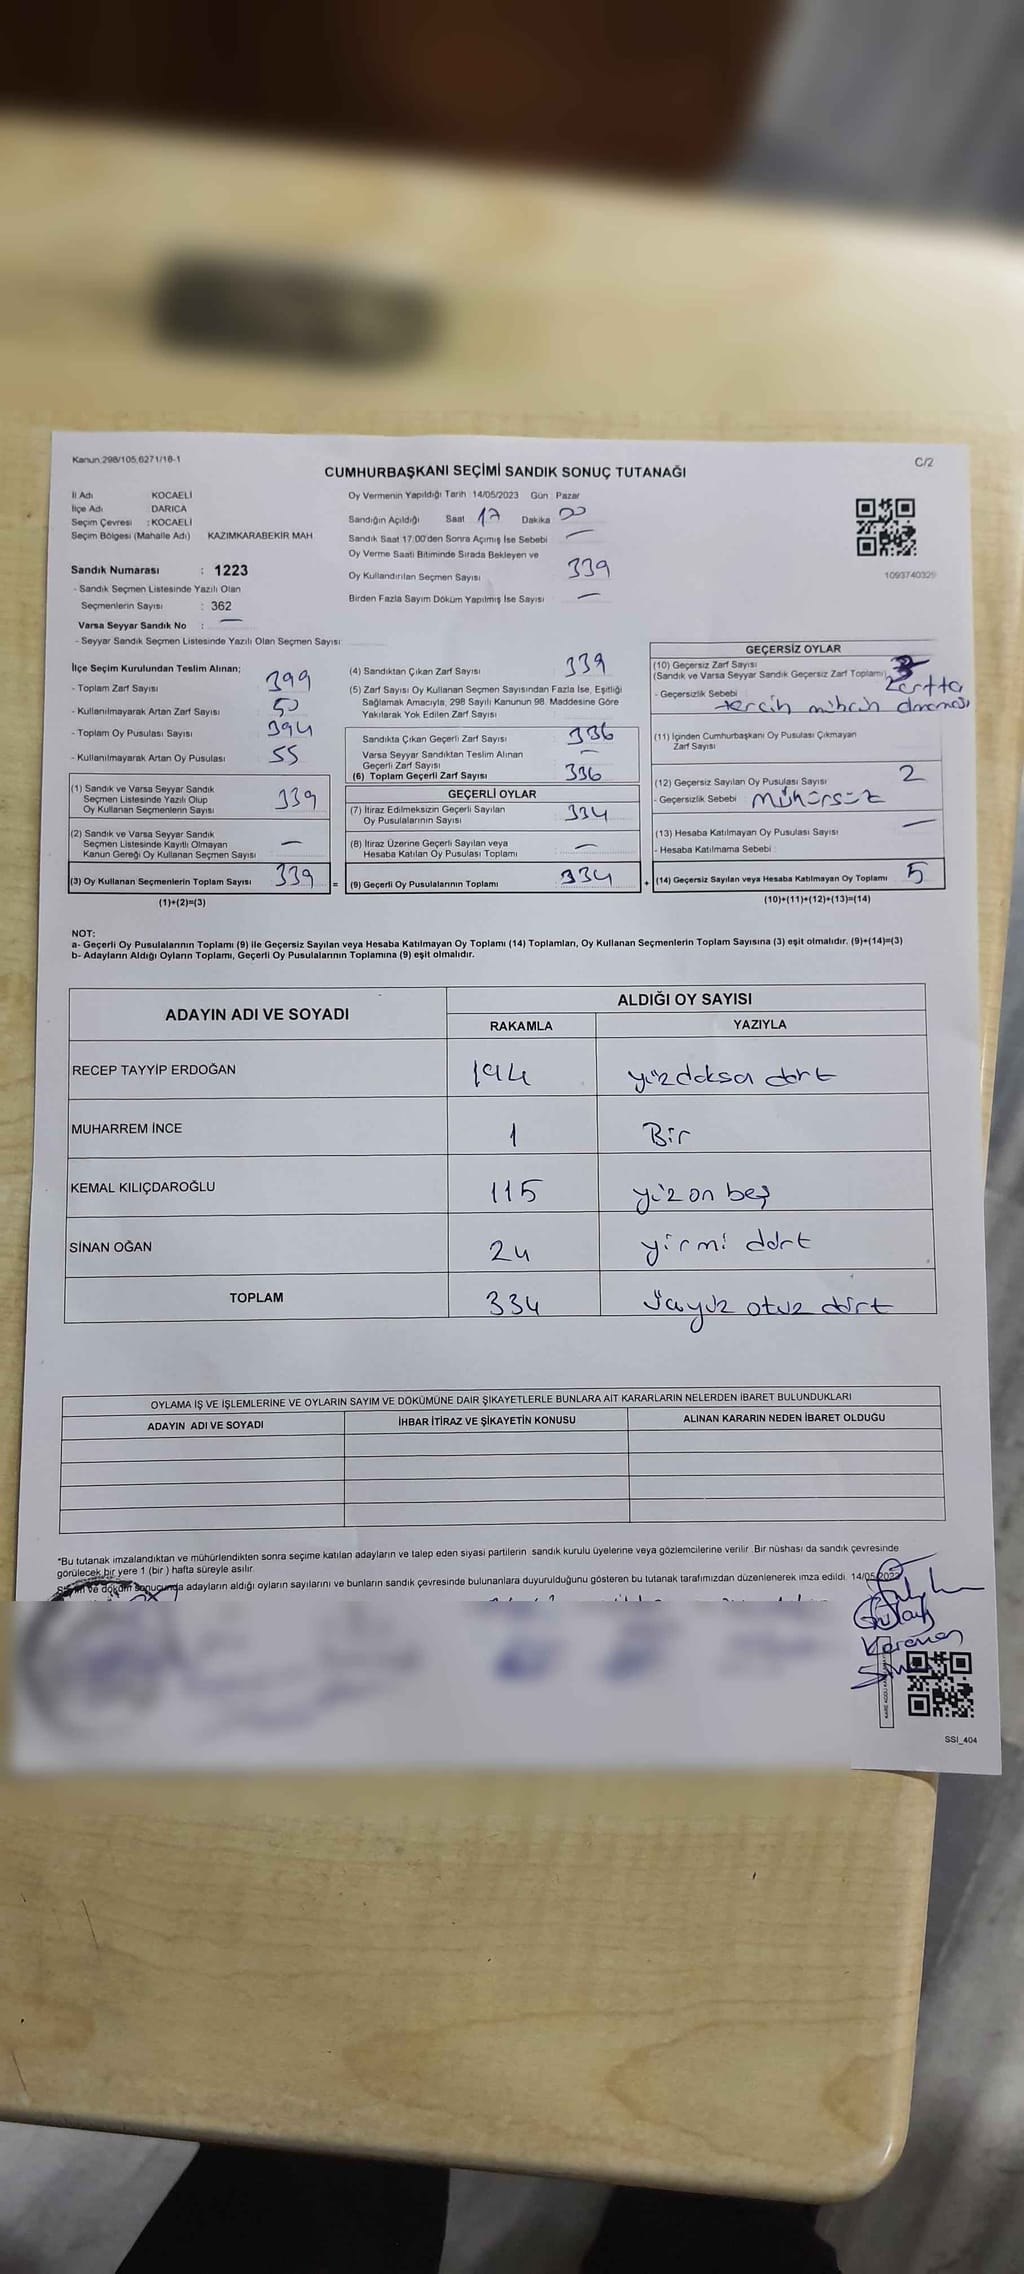 Kanun 298/105,6271/16-1
C/2
CUMHURBAŞKANI SEÇİMİ SANDIK SONUÇ TUTANAĞI
İl Adı KOCAELİ
İlçe Adı DARICA
Seçim Çevresi : KOCAELİ
Seçim Bölgesi (Mahalle Adı) KAZIMKARABEKİR MAH
Sandık Numarası : 1223
- Sandık Seçmen Listesinde Yazılı Olan
Seçmenlerin Sayısı : 362
Varsa Seyyar Sandık No : —
- Seyyar Sandık Seçmen Listesinde Yazılı Olan Seçmen Sayısı:
Oy Vermenin Yapıldığı Tarih 14/05/2023 Gün : Pazar
Sandığın Açıldığı Saat 17 Dakika 00
Sandık Saat 17:00'den Sonra Açımış İse Sebebi —
Oy Verme Saati Bitiminde Sırada Bekleyen ve
Oy Kullandırılan Seçmen Sayısı 339
Birden Fazla Sayım Döküm Yapılmış İse Sayısı —
1093740329
İlçe Seçim Kurulundan Teslim Alınan;
- Toplam Zarf Sayısı 399
- Kullanılmayarak Artan Zarf Sayısı 50
- Toplam Oy Pusulası Sayısı 394
- Kullanılmayarak Artan Oy Pusulası 55
(1) Sandık ve Varsa Seyyar Sandık
Seçmen Listesinde Yazılı Olup
Oy Kullanan Seçmenlerin Sayısı 339
(2) Sandık ve Varsa Seyyar Sandık
Seçmen Listesinde Kayıtlı Olmayan
Kanun Gereği Oy Kullanan Seçmen Sayısı —
(3) Oy Kullanan Seçmenlerin Toplam Sayısı 339
(1)+(2)=(3)
(4) Sandıktan Çıkan Zarf Sayısı 339
(5) Zarf Sayısı Oy Kullanan Seçmen Sayısından Fazla İse, Eşitliği
Sağlamak Amacıyla, 298 Sayılı Kanunun 98. Maddesine Göre
Yakılarak Yok Edilen Zarf Sayısı
Sandıkta Çıkan Geçerli Zarf Sayısı 336
Varsa Seyyar Sandıktan Teslim Alınan
Geçerli Zarf Sayısı —
(6) Toplam Geçerli Zarf Sayısı 336
GEÇERLİ OYLAR
(7) İtiraz Edilmeksizin Geçerli Sayılan
Oy Pusulalarının Sayısı 334
(8) İtiraz Üzerine Geçerli Sayılan veya
Hesaba Katılan Oy Pusulası Toplamı —
= (9) Geçerli Oy Pusulalarının Toplamı 334
GEÇERSİZ OYLAR
(10) Geçersiz Zarf Sayısı
(Sandık ve Varsa Seyyar Sandık Geçersiz Zarf Toplamı) 3
- Geçersizlik Sebebi zarfta
tercih mührü
(11) İçinden Cumhurbaşkanı Oy Pusulası Çıkmayan
Zarf Sayısı
(12) Geçersiz Sayılan Oy Pusulası Sayısı 2
- Geçersizlik Sebebi Mühürsüz
(13) Hesaba Katılmayan Oy Pusulası Sayısı —
- Hesaba Katılmama Sebebi :
+ (14) Geçersiz Sayılan veya Hesaba Katılmayan Oy Toplamı 5
(10)+(11)+(12)+(13)=(14)
NOT:
a- Geçerli Oy Pusulalarının Toplamı (9) ile Geçersiz Sayılan veya Hesaba Katılmayan Oy Toplamı (14) Toplamları, Oy Kullanan Seçmenlerin Toplam Sayısına (3) eşit olmalıdır. (9)+(14)=(3)
b- Adayların Aldığı Oyların Toplamı, Geçerli Oy Pusulalarının Toplamına (9) eşit olmalıdır.
ADAYIN ADI VE SOYADI ALDIĞI OY SAYISI
RAKAMLA YAZIYLA
RECEP TAYYİP ERDOĞAN 194 yüzdoksa dört
MUHARREM İNCE 1 Bir
KEMAL KILIÇDAROĞLU 115 yüz on beş
SİNAN OĞAN 24 yirmi dört
TOPLAM 334 üçyüz otuz dört
OYLAMA İŞ VE İŞLEMLERİNE VE OYLARIN SAYIM VE DÖKÜMÜNE DAİR ŞİKAYETLERLE BUNLARA AİT KARARLARIN NELERDEN İBARET BULUNDUKLARI
ADAYIN ADI VE SOYADI İHBAR İTİRAZ VE ŞİKAYETİN KONUSU ALINAN KARARIN NEDEN İBARET OLDUĞU
*Bu tutanak imzalandıktan ve mühürlendikten sonra seçime katılan adayların ve talep eden siyasi partilerin sandık kurulu üyelerine veya gözlemcilerine verilir. Bir nüshası da sandık çevresinde
görülecek bir yere 1 (bir ) hafta süreyle asılır.
Sayım ve döküm sonucunda adayların aldığı oyların sayılarını ve bunların sandık çevresinde bulunanlara duyurulduğunu gösteren bu tutanak tarafımızdan düzenlenerek imza edildi. 14/05/2023
SSI_404